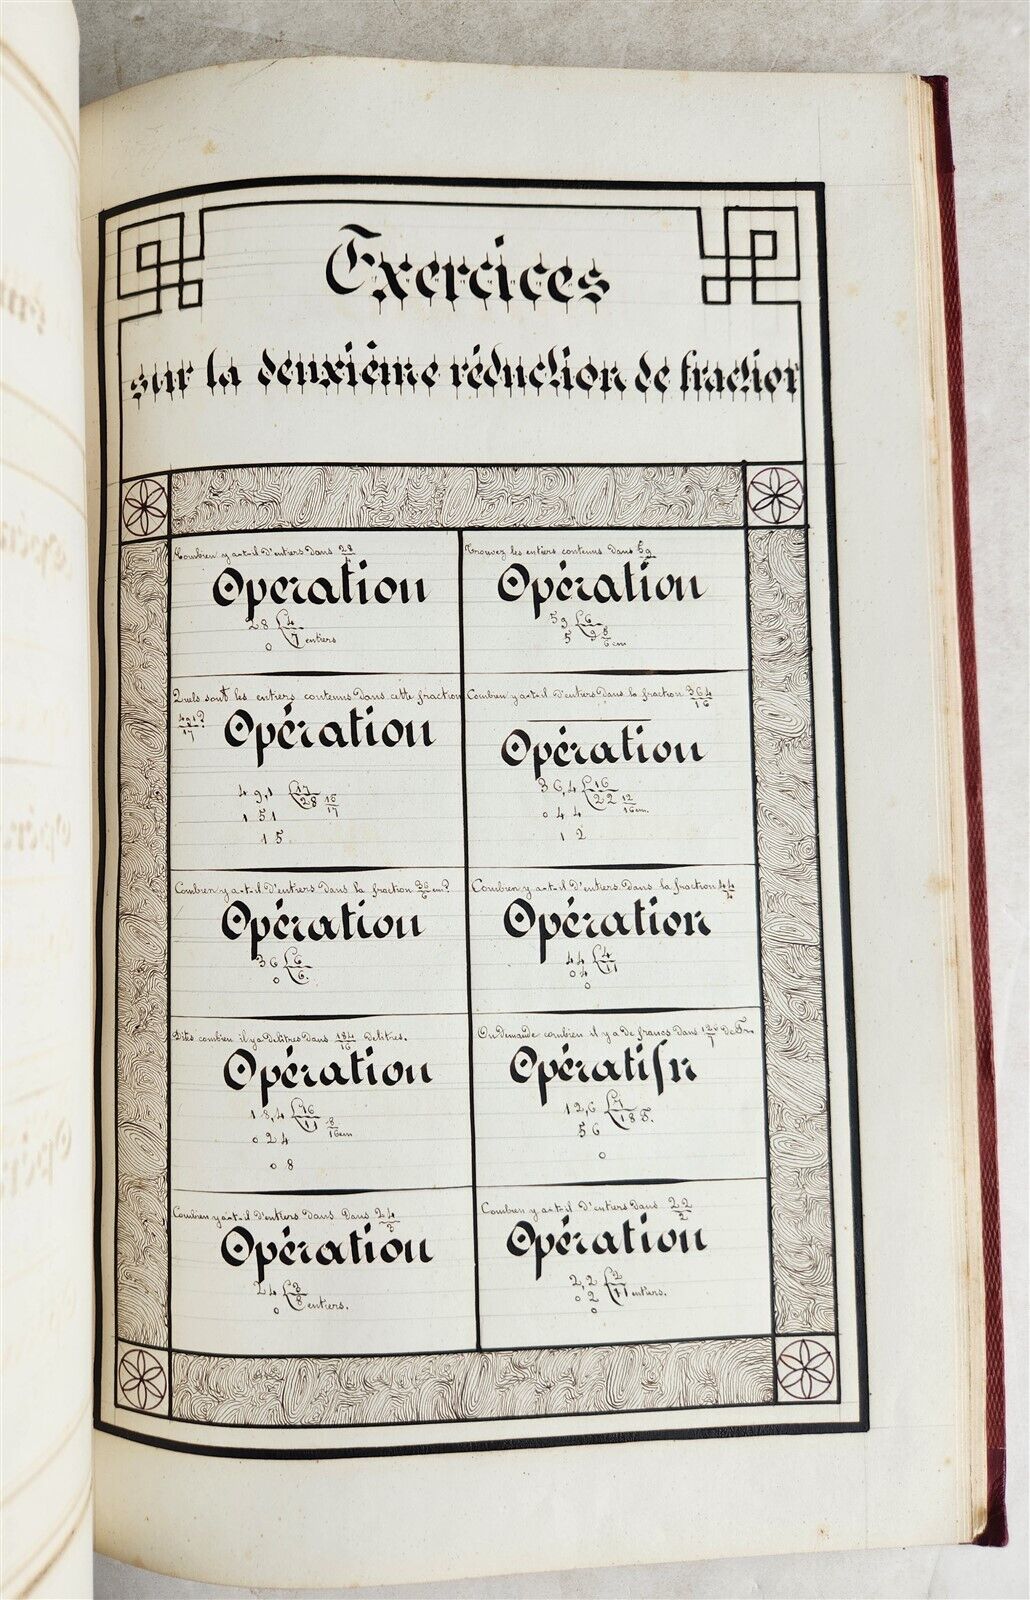 Exercices
sur la deuxième réduction de fraction
Combien y a-t-il d'entiers dans 28/4
Operation
28 4
0 7 entiers
Trouvez les entiers contenus dans 59
Opération
59 6
5 9 5/6 em
Quels sont les entiers contenus dans cette fraction
491/17?
Opération
49,1 17
151 28 15/17
15
Combien y a-t-il d'entiers dans la fraction 364/16
Opération
36,4 16
044 22 12/16em.
12
Combien y a-t-il d'entiers dans la fraction 36/6 em?
Opération
36 6
0 6.
Combien y a-t-il d'entiers dans la fraction 44/4
Opération
44 4
04 11
0
Dites combien il y a de litres dans 184/16 de litres.
Opération
18,4 16
024 11 8/16em
08
On demande combien il y a de francs dans 126/7 de Fr.
Opération
12,6 7
56 18 F.
0
Combien y a-t-il d'entiers dans Dans 24/3
Opération
24 3
0 8 entiers.
Combien y a-t-il d'entiers dans 22/2
Opération
2,2 2
02 11 entiers.
0